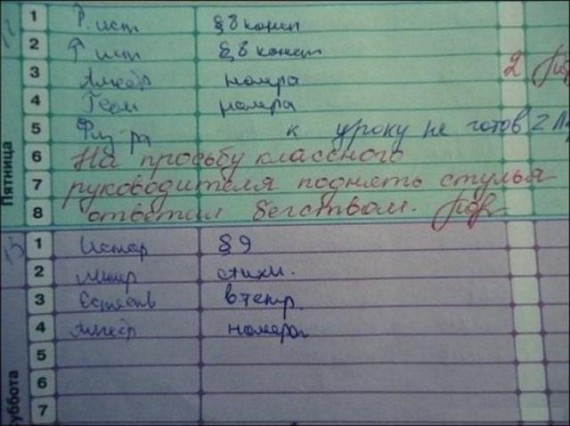 Пятница
1 Р. ист. § 8 консп
2 Р ист § 8 консп
3 Алгебр номера 2
4 Геом номера
5 Физ ра к уроку не готов 2
6 На просьбу классного
7 руководителя поднять стулья
8 ответил бегством.
Суббота
1 Истор § 9
2 Литер стихи.
3 Естеств в тетр.
4 Алгебр номера
5
6
7